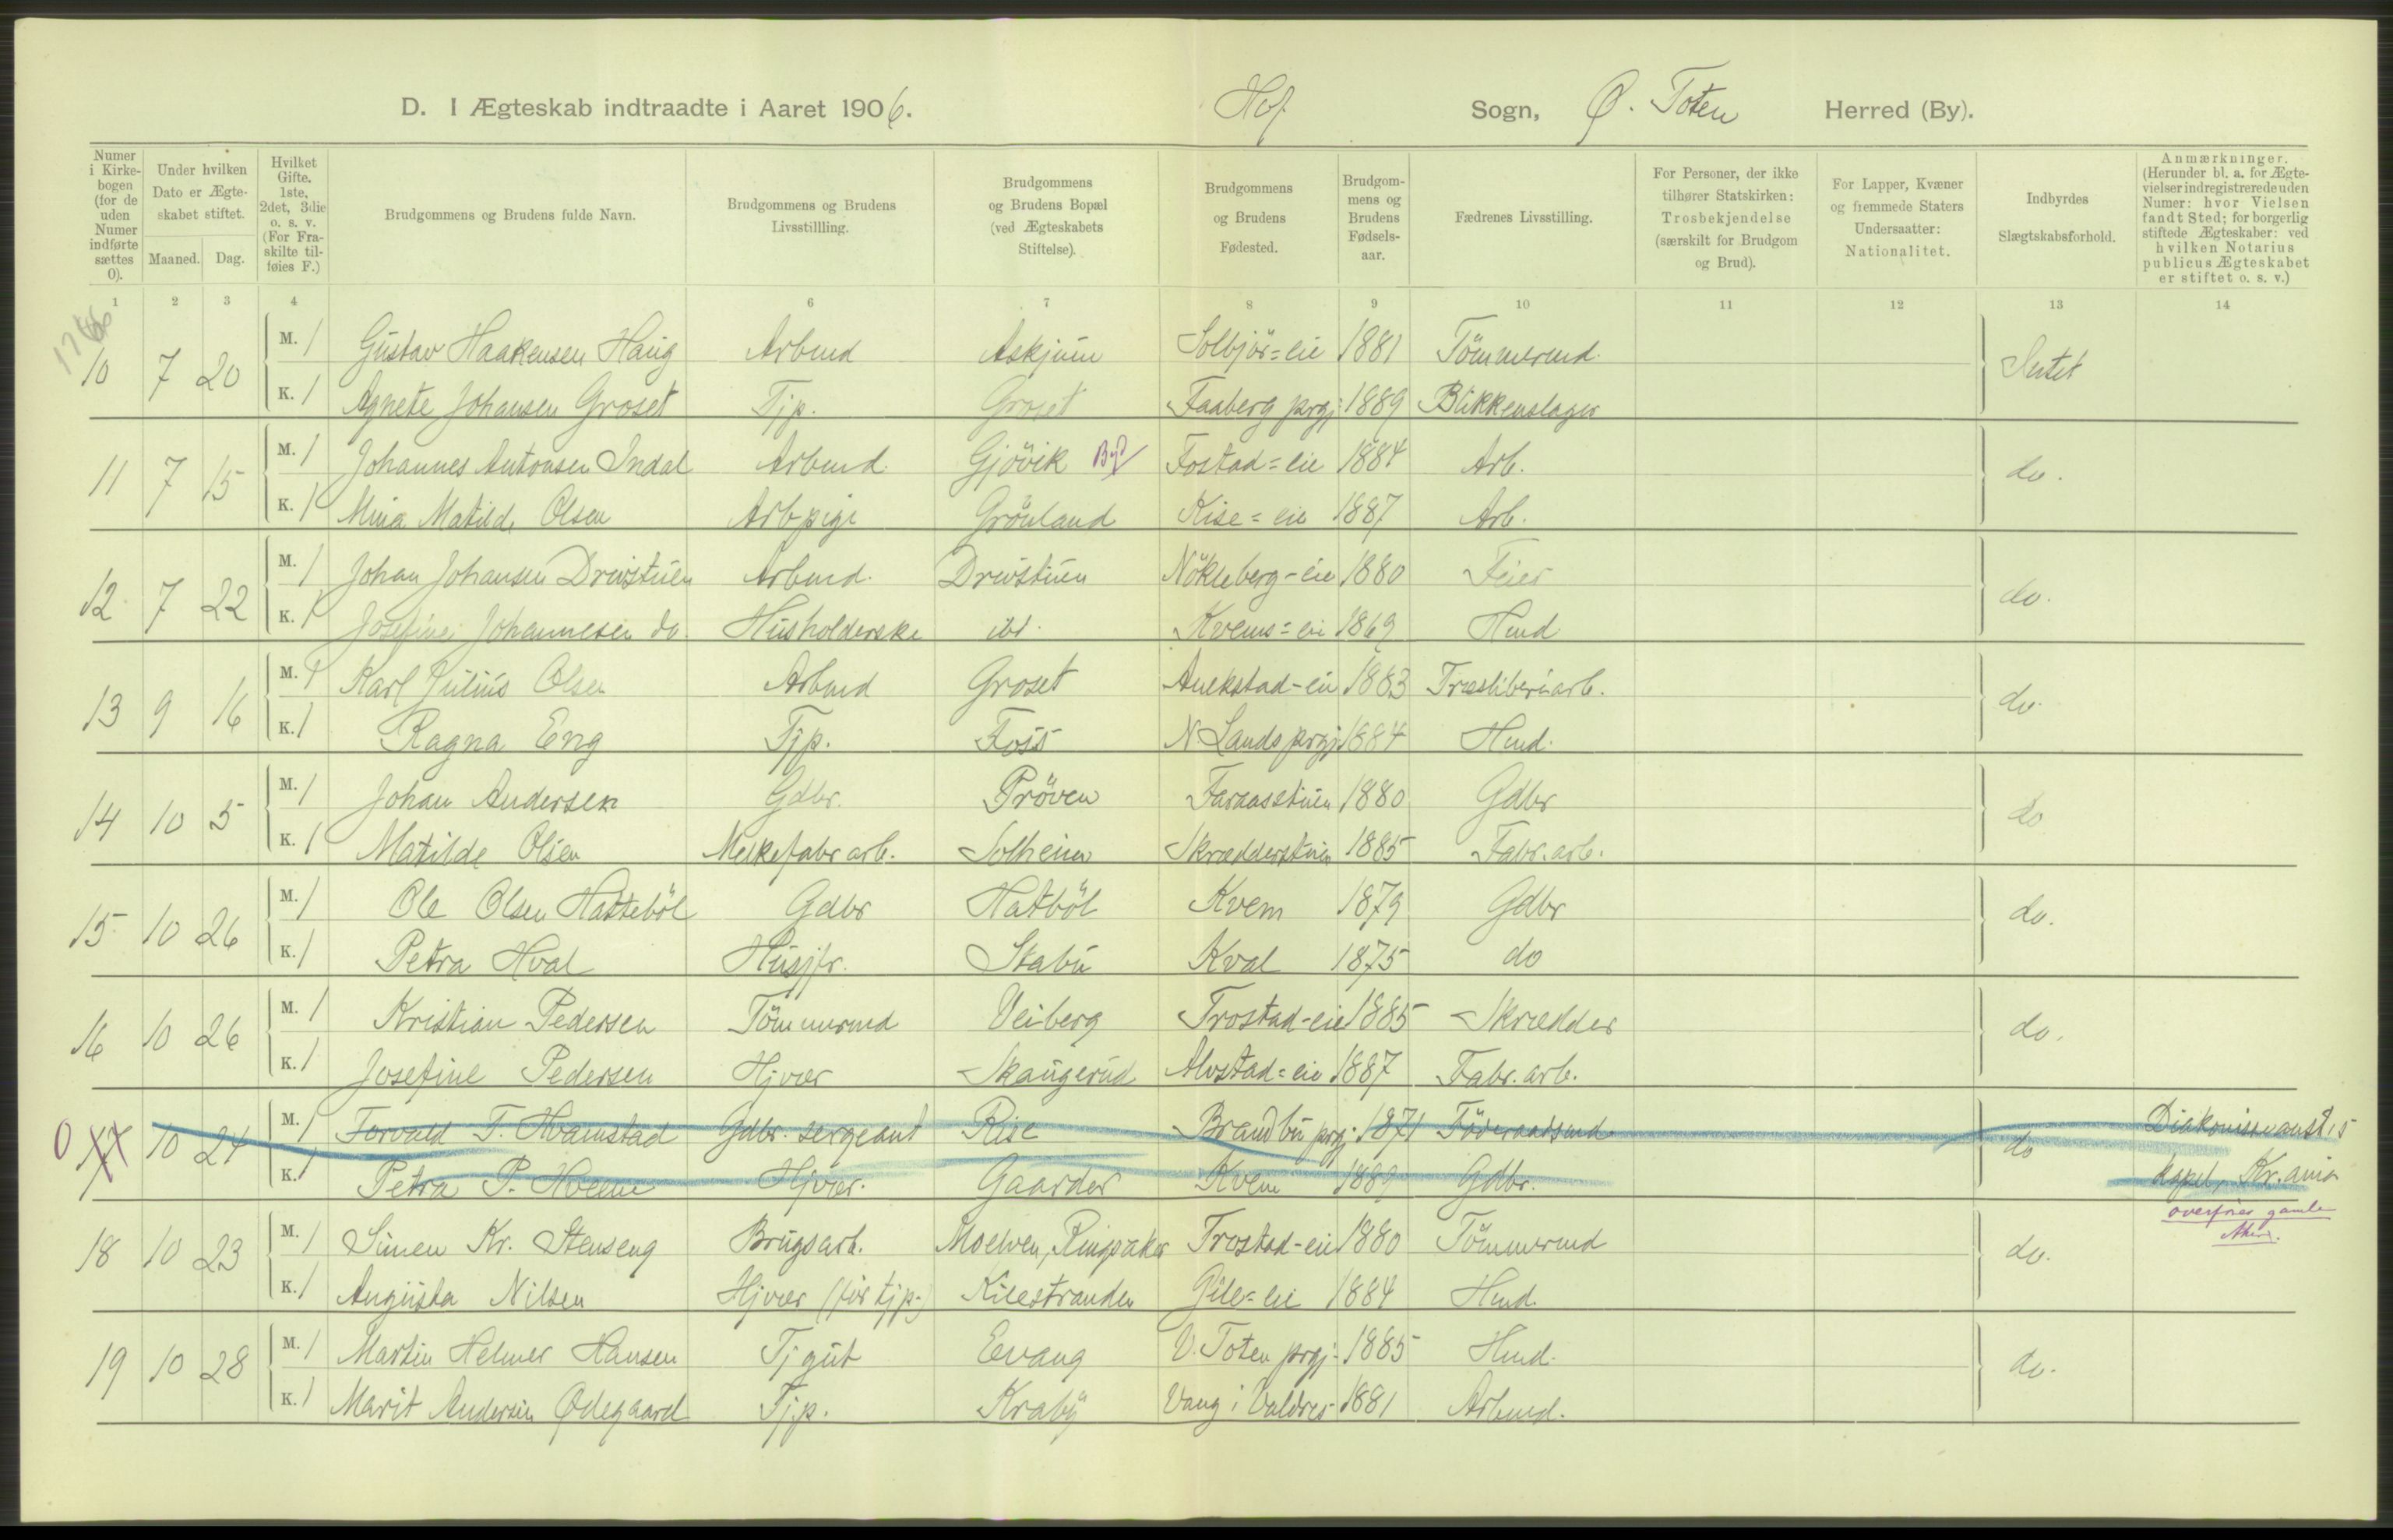 D. I Ægteskab indtraadte i Aaret 1906. Hof Sogn, Ø. Toten Herred (By).
Numer i Kirkebogen (for de uden Numer indførte sættes 0).
Under hvilken Dato er Ægteskabet stiftet.
Maaned. Dag.
Hvilket Gifte. 1ste, 2det, 3die o. s. v. (For Fraskilte tilføies F.)
Brudgommens og Brudens fulde Navn.
Brudgommens og Brudens Livsstillling.
Brudgommens og Brudens Bopæl (ved Ægteskabets Stiftelse).
Brudgommens og Brudens Fødested.
Brudgommens og Brudens Fødselsaar.
Fædrenes Livsstilling.
For Personer, der ikke tilhører Statskirken: Trosbekjendelse (særskilt for Brudgom og Brud).
For Lapper, Kvæner og fremmede Staters Undersaatter: Nationalitet.
Indbyrdes Slægtskabsforhold.
Anmærkninger. (Herunder bl. a. for Ægtevielser indregistrerede uden Numer: hvor Vielsen fandt Sted; for borgerlig stiftede Ægteskaber: ved hvilken Notarius publicus Ægteskabet er stiftet o. s. v.)
1 2 3 4 6 7 8 9 10 11 12 13 14
10 7 20 M. 1 Gustav Haakensen Haug Arbmd Askjum Solbjör=eie 1881 Tömmermd. Intet
K. 1 Agnete Johansen Groset Tjp. Groset Faaberg prgj: 1889 Blikkenslager
11 7 15 M. 1 Johannes Antonsen Indal Arbmd. Gjövik By Fostad=eie 1884 Arb. do.
K. 1 Mina Matilde Olsen Arbpige Grönland Kise=eie 1887 Arb.
12 7 22 M. 1 Johan Johansen Drivstuen Arbmd. Drivstuen Nökleberg-eie 1880 Feier do.
K. 1 Josefine Johannesen do. Husholderske ibd. Kvems=eie 1869 Hmd
13 9 16 M. 1 Karl Julius Olsen Arbmd Groset Anekstad-eie 1883 Træsliberiarb. do.
K. 1 Ragna Eng Tjp. Foss N. Lands prgj 1884 Hmd.
14 10 5 M. 1 Johan Andersen Gdbr. Pröven Faraasstuen 1880 Gdbr do
K. 1 Matilde Olsen Melkefabr arb. Solheim Skrædderstuen 1885 Fabr. arb.
15 10 26 M. 1 Ole Olsen Hatteböl Gdbr Hatböl Kvem 1879 Gdbr do.
K. 1 Petra Hval Husjfr. Stabu Kval 1875 do
16 10 26 M. 1 Kristian Pedersen Tömmermd Veiberg Trostad-eie 1885 Skrædder do.
K. 1 Josefine Pedersen Hjvær Skaugerud Alvstad=eie 1887 Fabr. arb.
0 17 10 24 M. 1 Torvald T. Hvamstad Gdbr. sergeant Rise Brandbu prgj. 1871 Föderaadsmd do Diakonisseanst.s
K. 1 Petra P. Hveem Hjvær. Gaarder Kvem 1889 Gdbr. kapel, Kr.ania
overføres gamle
Aker.
18 10 23 M. 1 Simen Kr. Stenseng Brugsarb. Moelven, Ringsaker Trostad-eie 1880 Tömmermd do.
K. 1 Augusta Nilsen Hjvær (för tjp.) Kilestranden Gile=eie 1884 Hmd.
19 10 28 M. 1 Martin Helmer Hansen Tjgut Evang V. Toten prgj. 1885 Hmd. do.
K. 1 Marit Andersen Ødegaard Tjp. Kraby Vang i Valdres 1881 Arbmd.